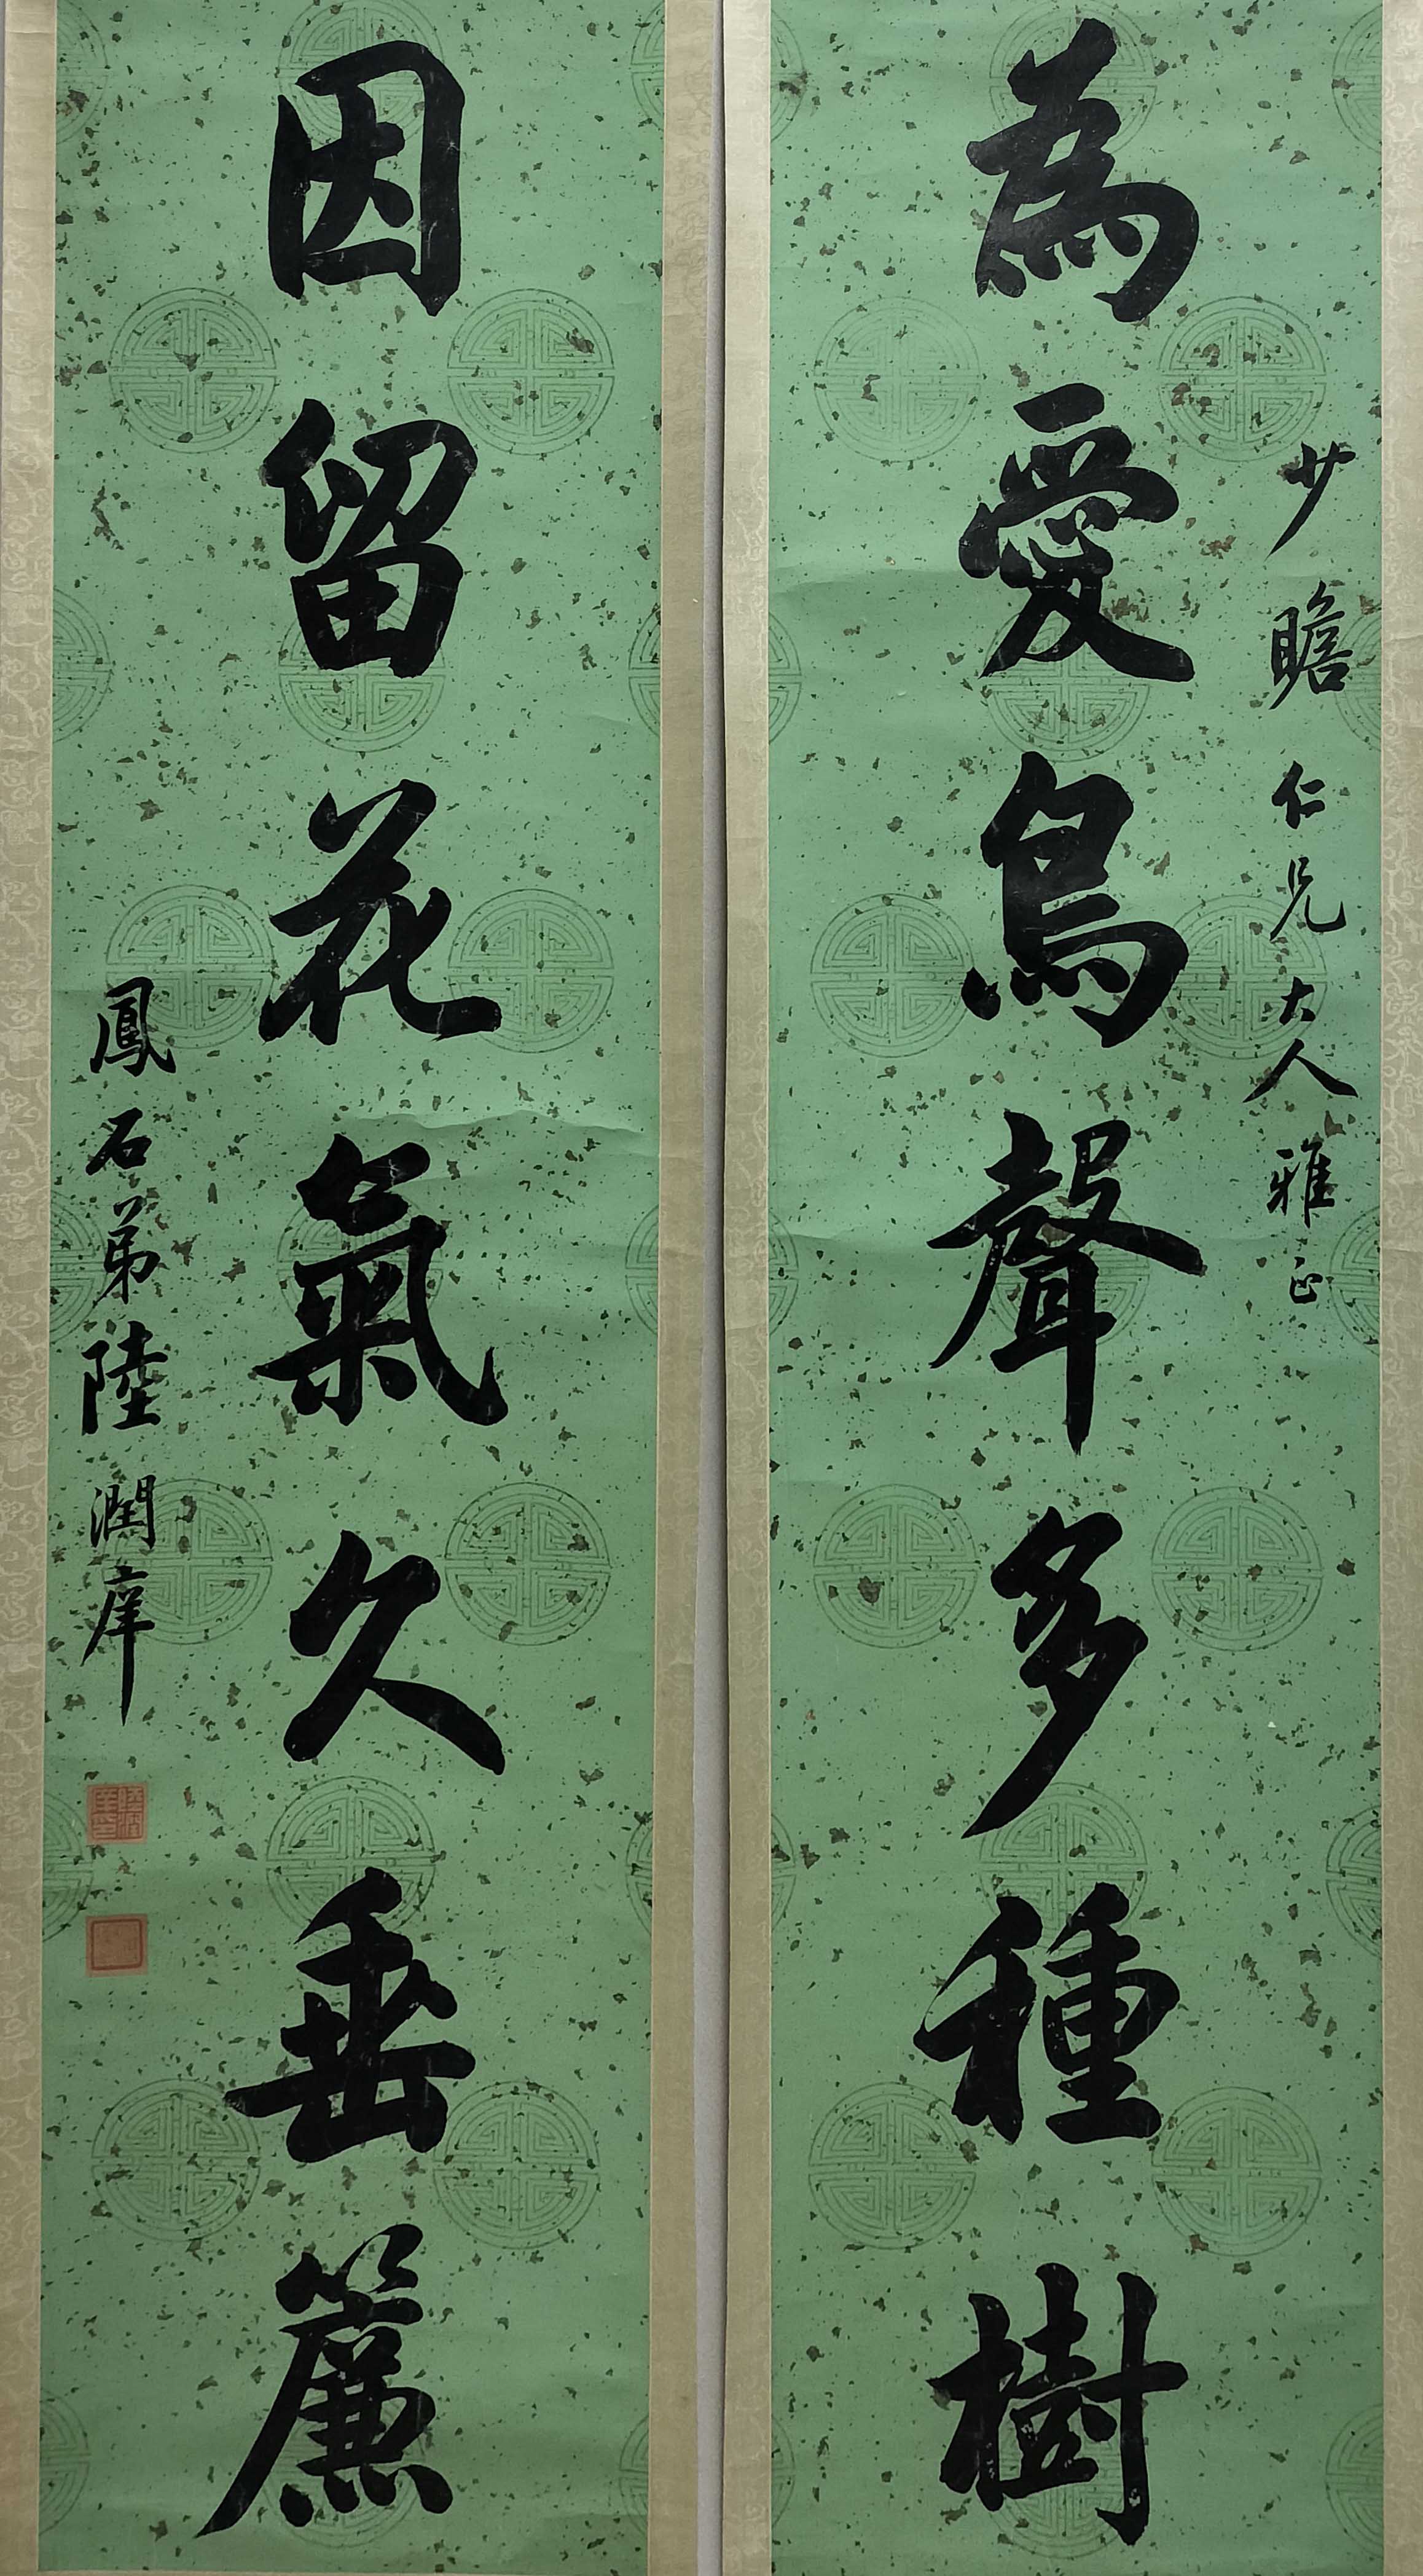 少瞻仁兄大人雅正
為愛鳥聲多種樹
因留花氣久垂簾
鳳石弟陸潤庠